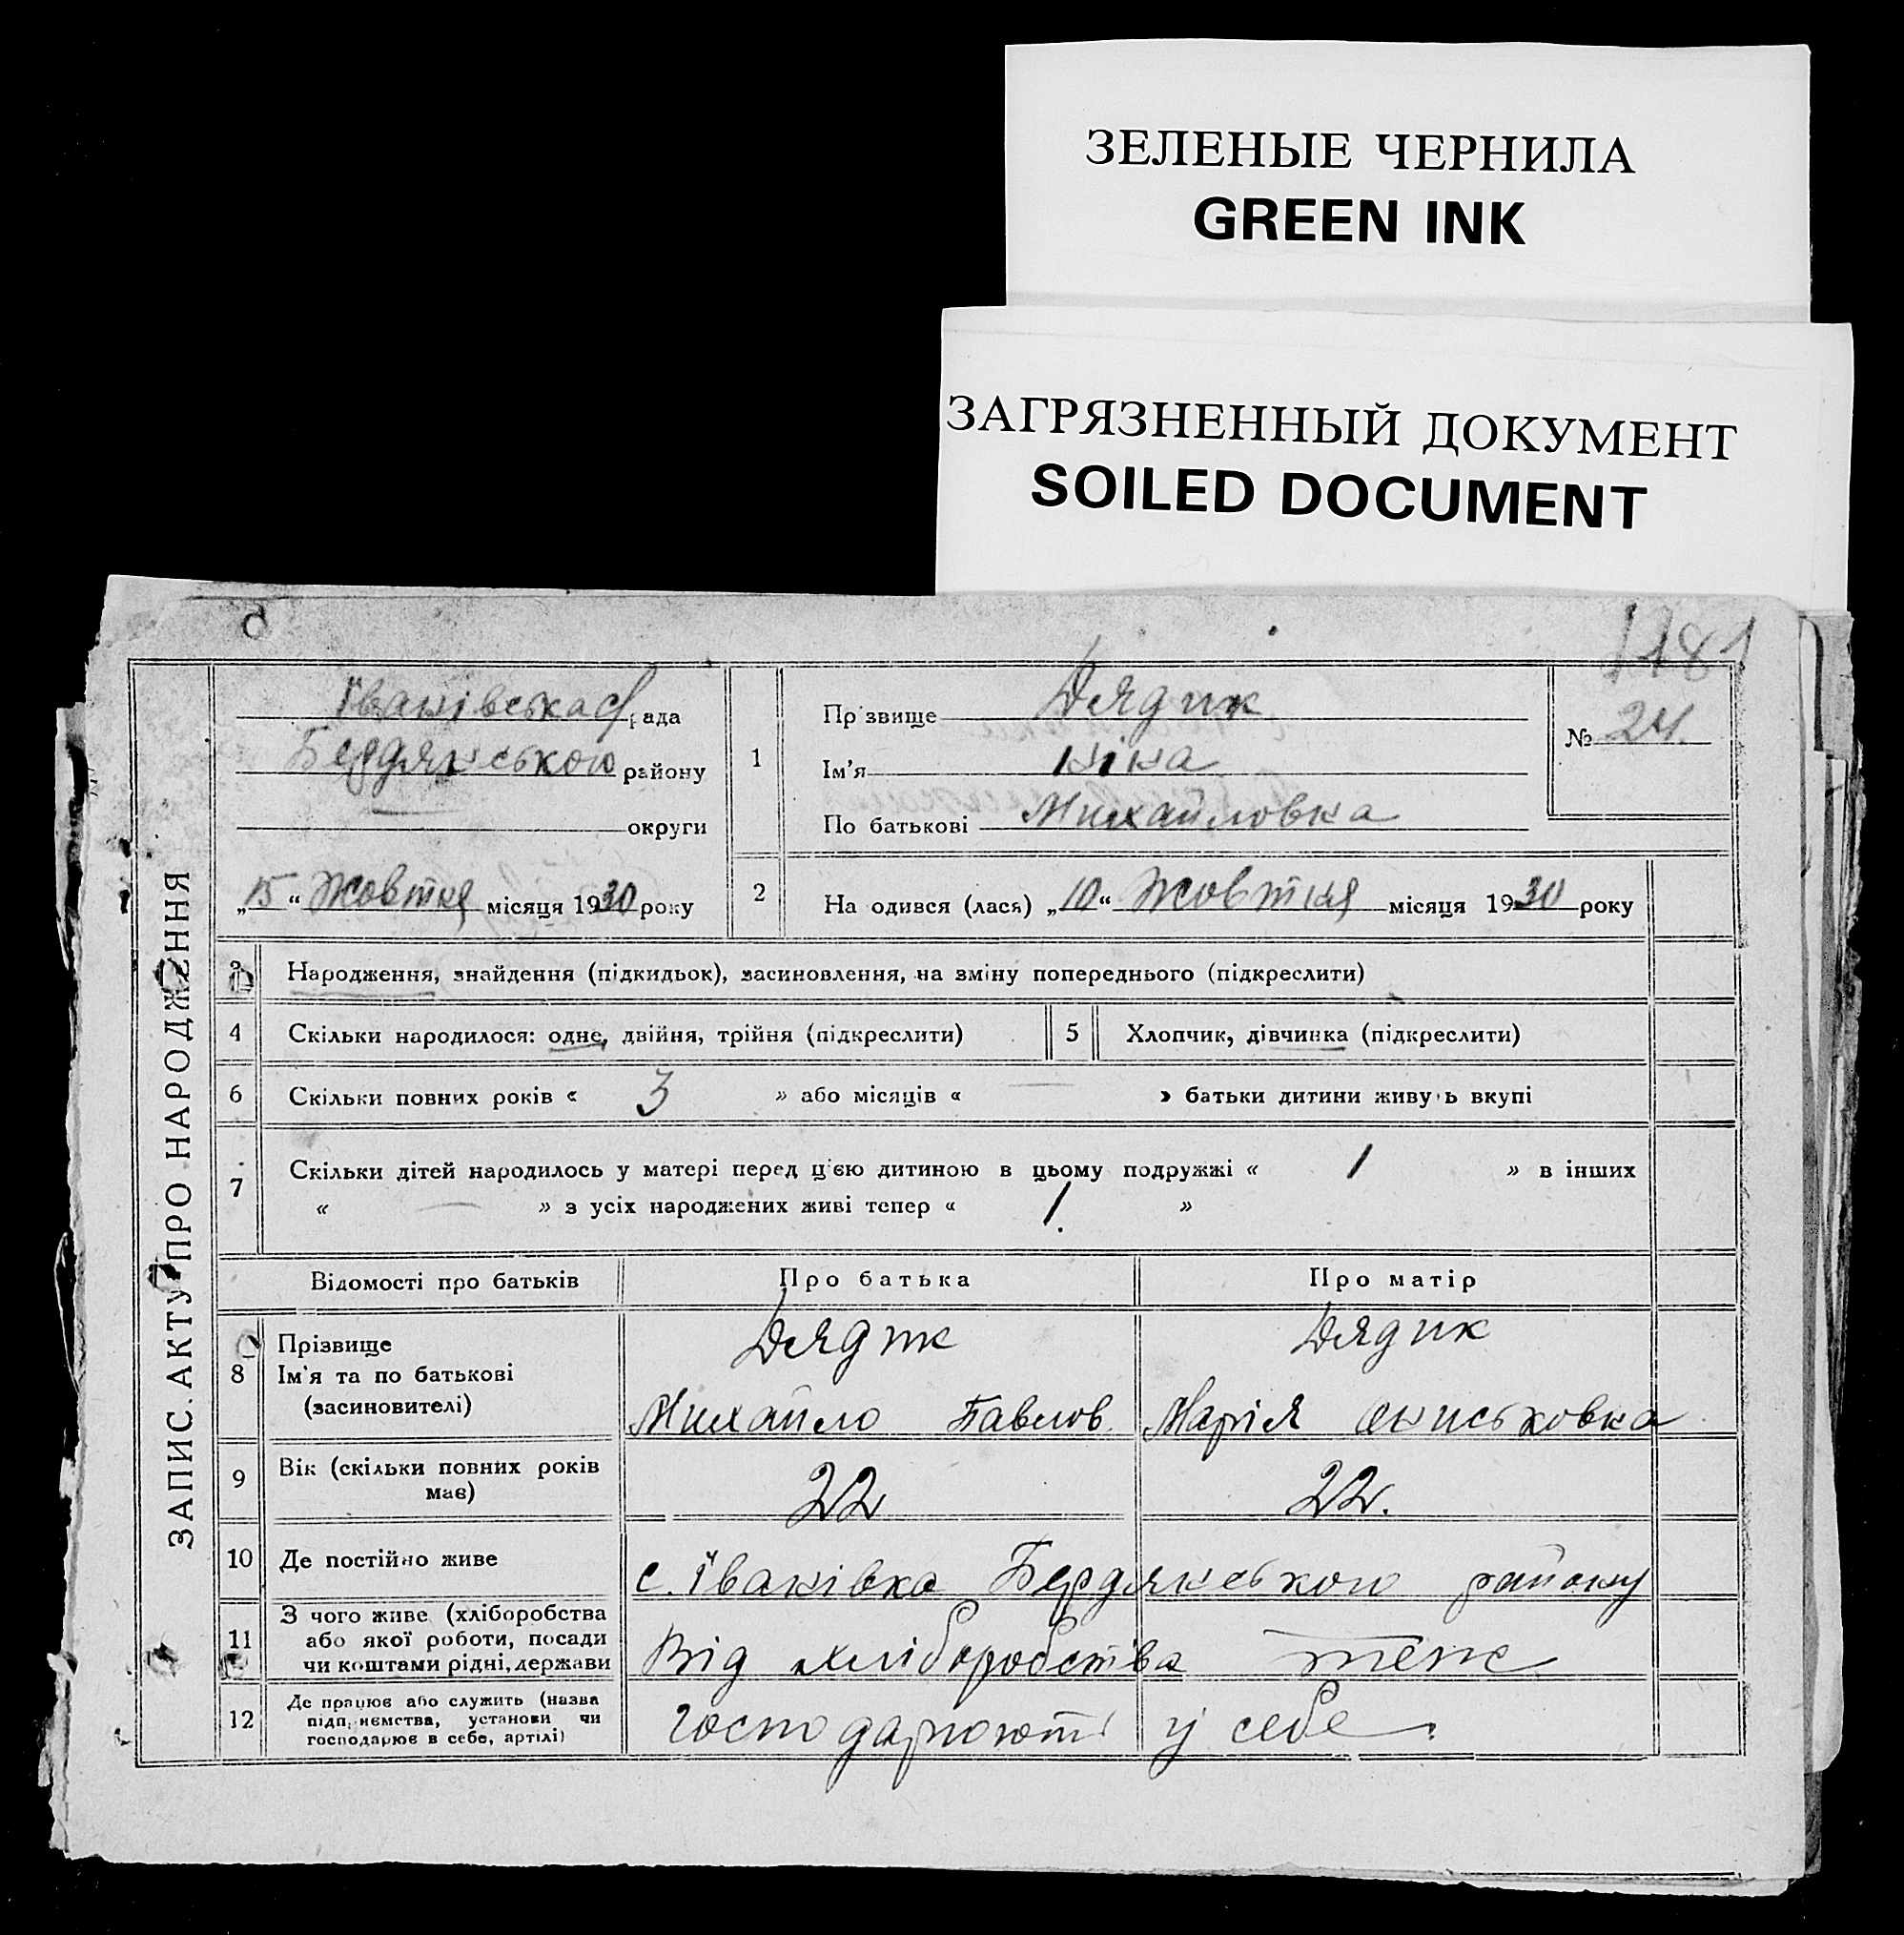 ЗЕЛЕНЫЕ ЧЕРНИЛА
GREEN INK
ЗАГРЯЗНЕННЫЙ ДОКУМЕНТ
SOILED DOCUMENT
ЗАПИС АКТУ ПРО НАРОДЖЕННЯ
Іванівська с/рада
Бердянського району
округи
„15“ Жовтня місяця 1930 року
1
Прізвище Дядик
Ім'я Ніна
По батькові Михайловна
№ 24.
2
На одився (лася) „10“ Жовтня місяця 1930 року
3 Народження, знайдення (підкидьок), засиновлення, на зміну попереднього (підкреслити)
4 Скільки народилося: одне, двійня, трійня (підкреслити)
5 Хлопчик, дівчинка (підкреслити)
6 Скільки повних років « 3 » або місяців « — » батьки дитини живуть вкупі
7 Скільки дітей народилось у матері перед цією дитиною в цьому подружжі « 1 » в інших
« — » з усіх народжених живі тепер « 1. »
Відомості про батьків Про батька Про матір
8 Прізвище
Ім'я та по батькові
(засиновителі)
Дядик
Михайло Павлов.
Дядик
Марія
9 Вік (скільки повних років
має)
22
22.
10 Де постійно живе
с. Іванівка Бердянського району
11 З чого живе (хліборобства
або якої роботи, посади
чи коштами рідні, держави
Від хліборобства теж
12 Де працює або служить (назва
підприємства, установи чи
господарює в себе, артілі)
Господарюють у себе.